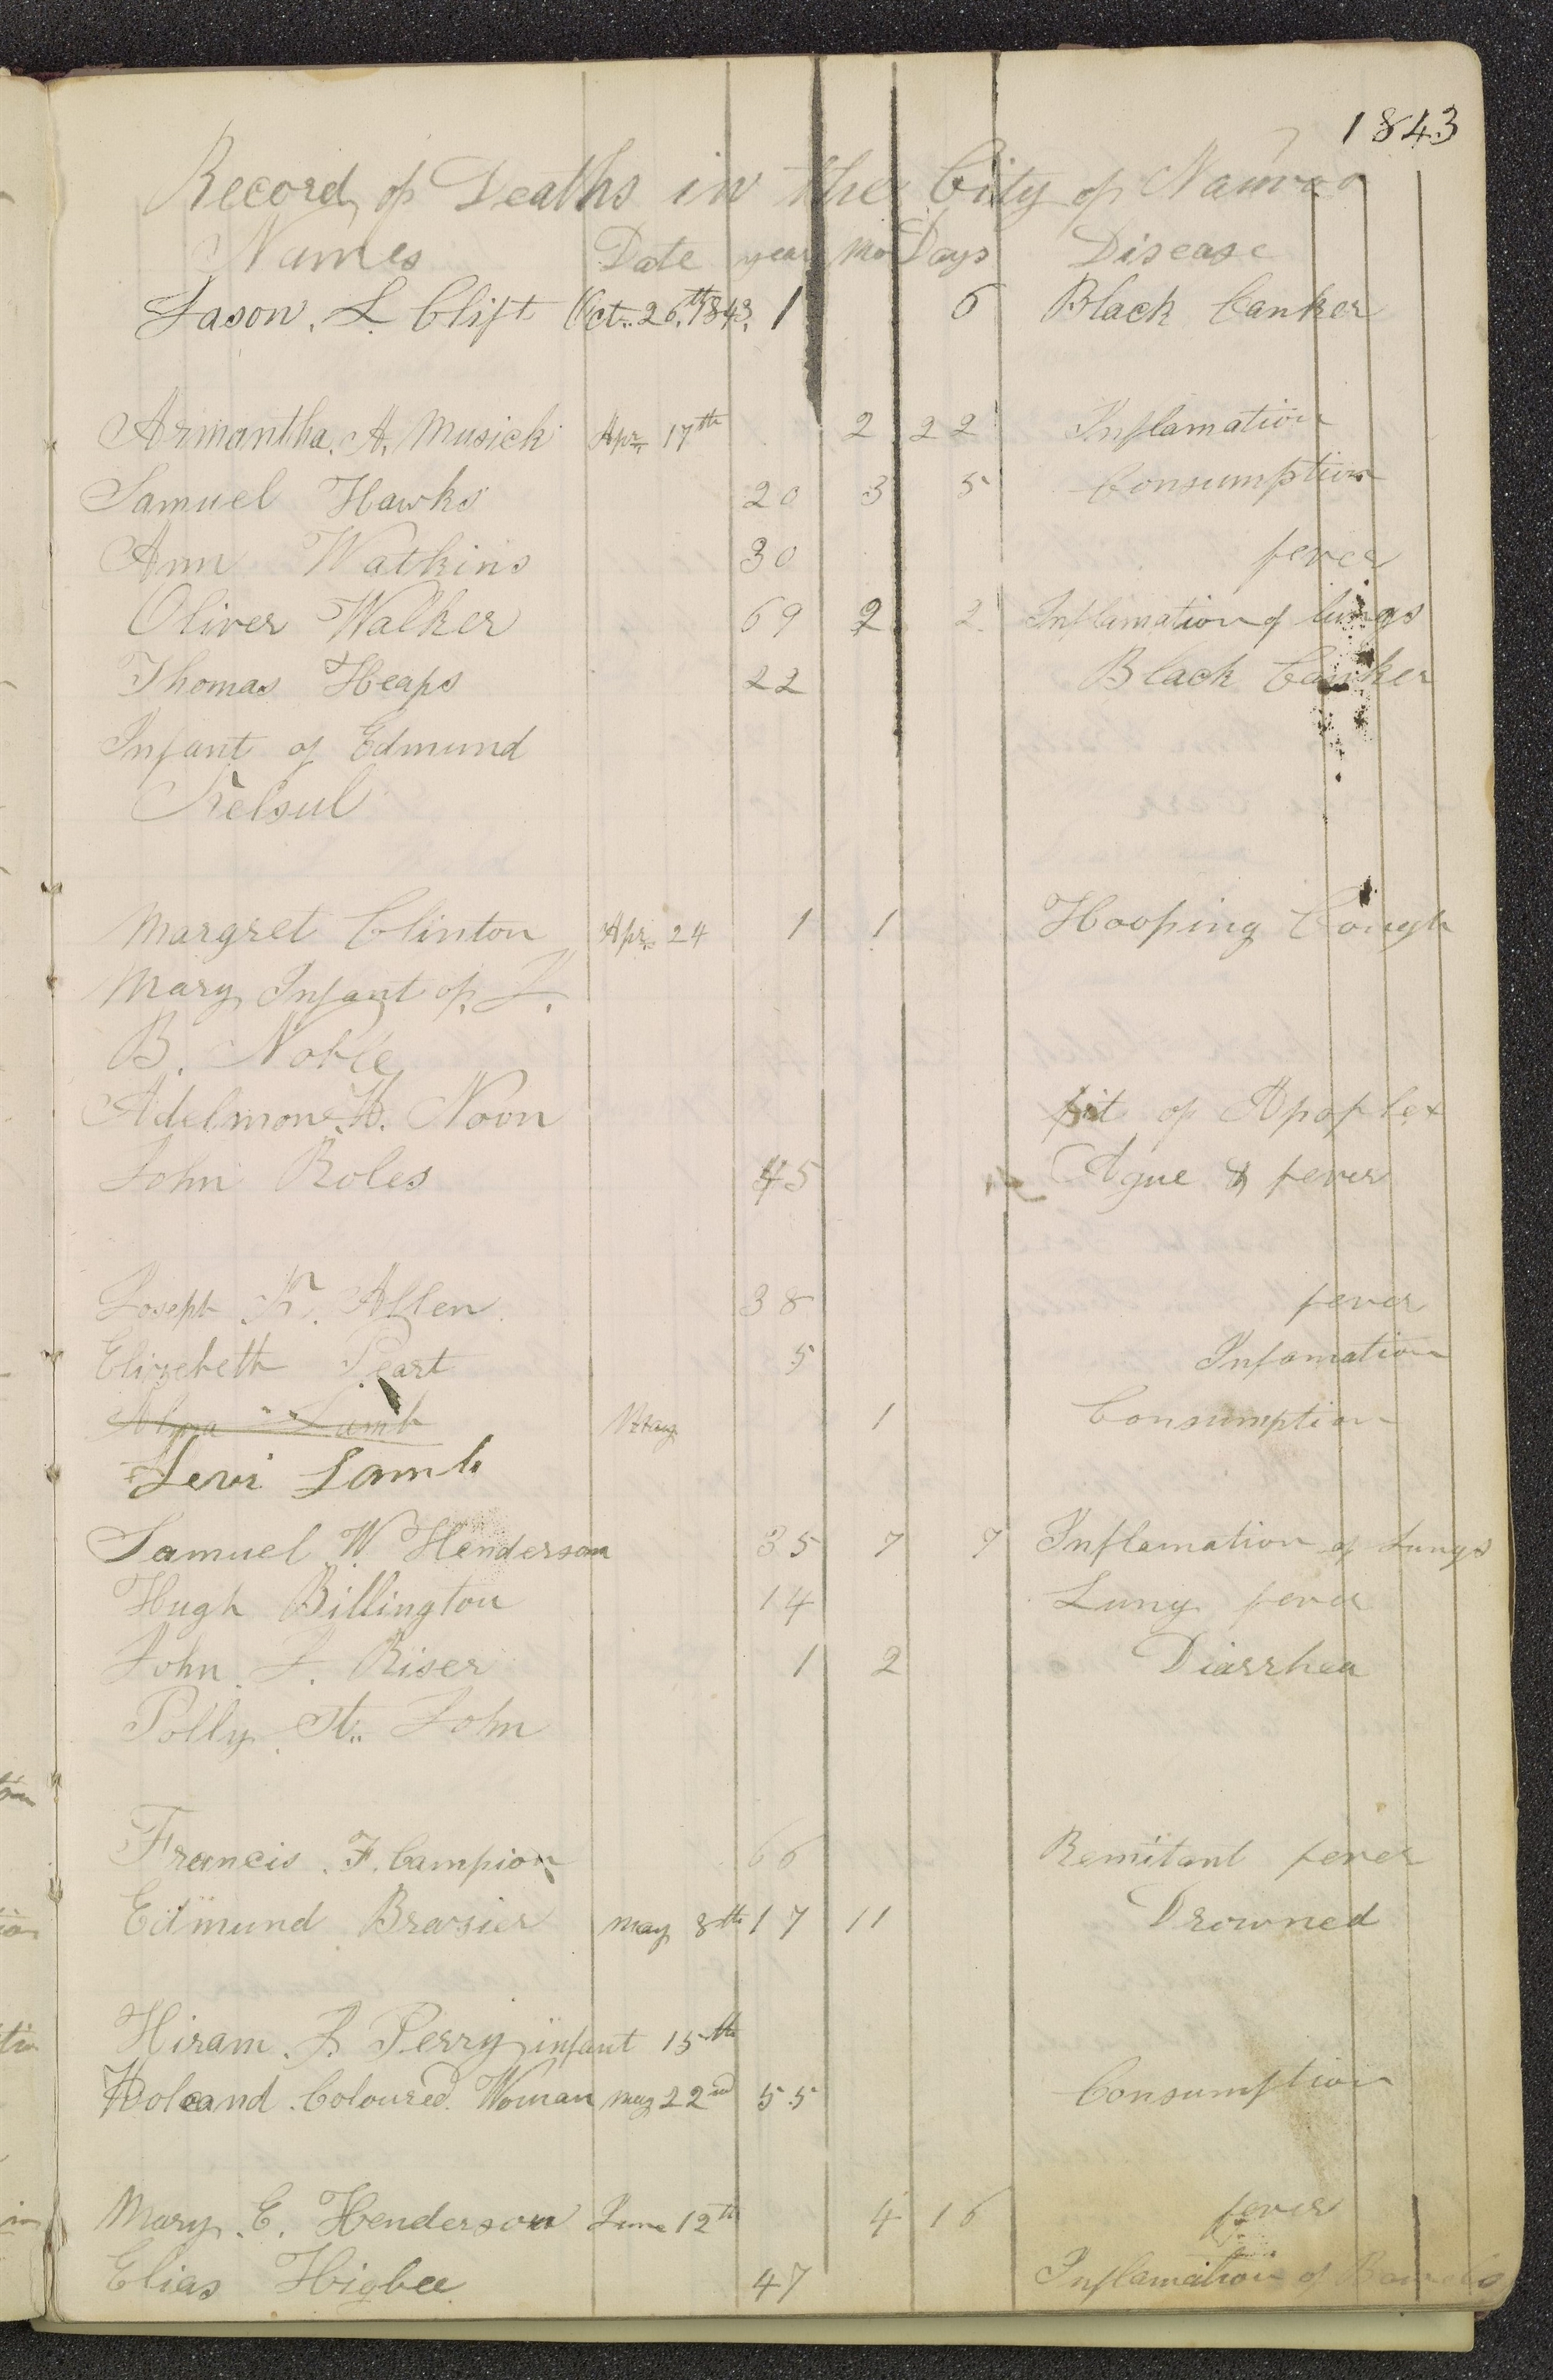 1843
Record of Deaths in the City of Nauvoo
Names Date year Mo Days Disease
Jason. L. Clift Oct. 26.th 1843. 1 6 Black Canker
Armantha. A. Musick Apr. 17th 2 22 Inflamation
Samuel Hawks 20 3 5 Consumption
Ann Watkins 30 fever
Oliver Walker 69 2 2 Inflamation of lungs
Thomas Heaps 22 Black Canker
Infant of Edmund
Kelsul
Margret Clinton Apr. 24 1 1 Hooping Cough
Mary Infant of J.
B. Noble
Adelmon. H. Noon fit of Apoplex
John Roles 45 Ague & fever
Joseph K. Allen 38 fever
Elizebeth Peart 5 Infamation
Alma Lamb May 1 Consumption
Levi Lamb
Samuel W. Henderson 35 7 7 Inflamation of Lungs
Hugh Billington 14 Lung fever
John. J. Riser 1 2 Diarrhea
Polly St. John
Francis. F. Campion 66 Remitant fever
Edmund Brasier May 8th 17 11 Drowned
Hiram. J. Perry infant 15th
Coloured Woman May 22nd 55 Consumption
Mary. E. Henderson June 12th 4 16 fever
Elias Higbee 47 Inflamation of Bowels